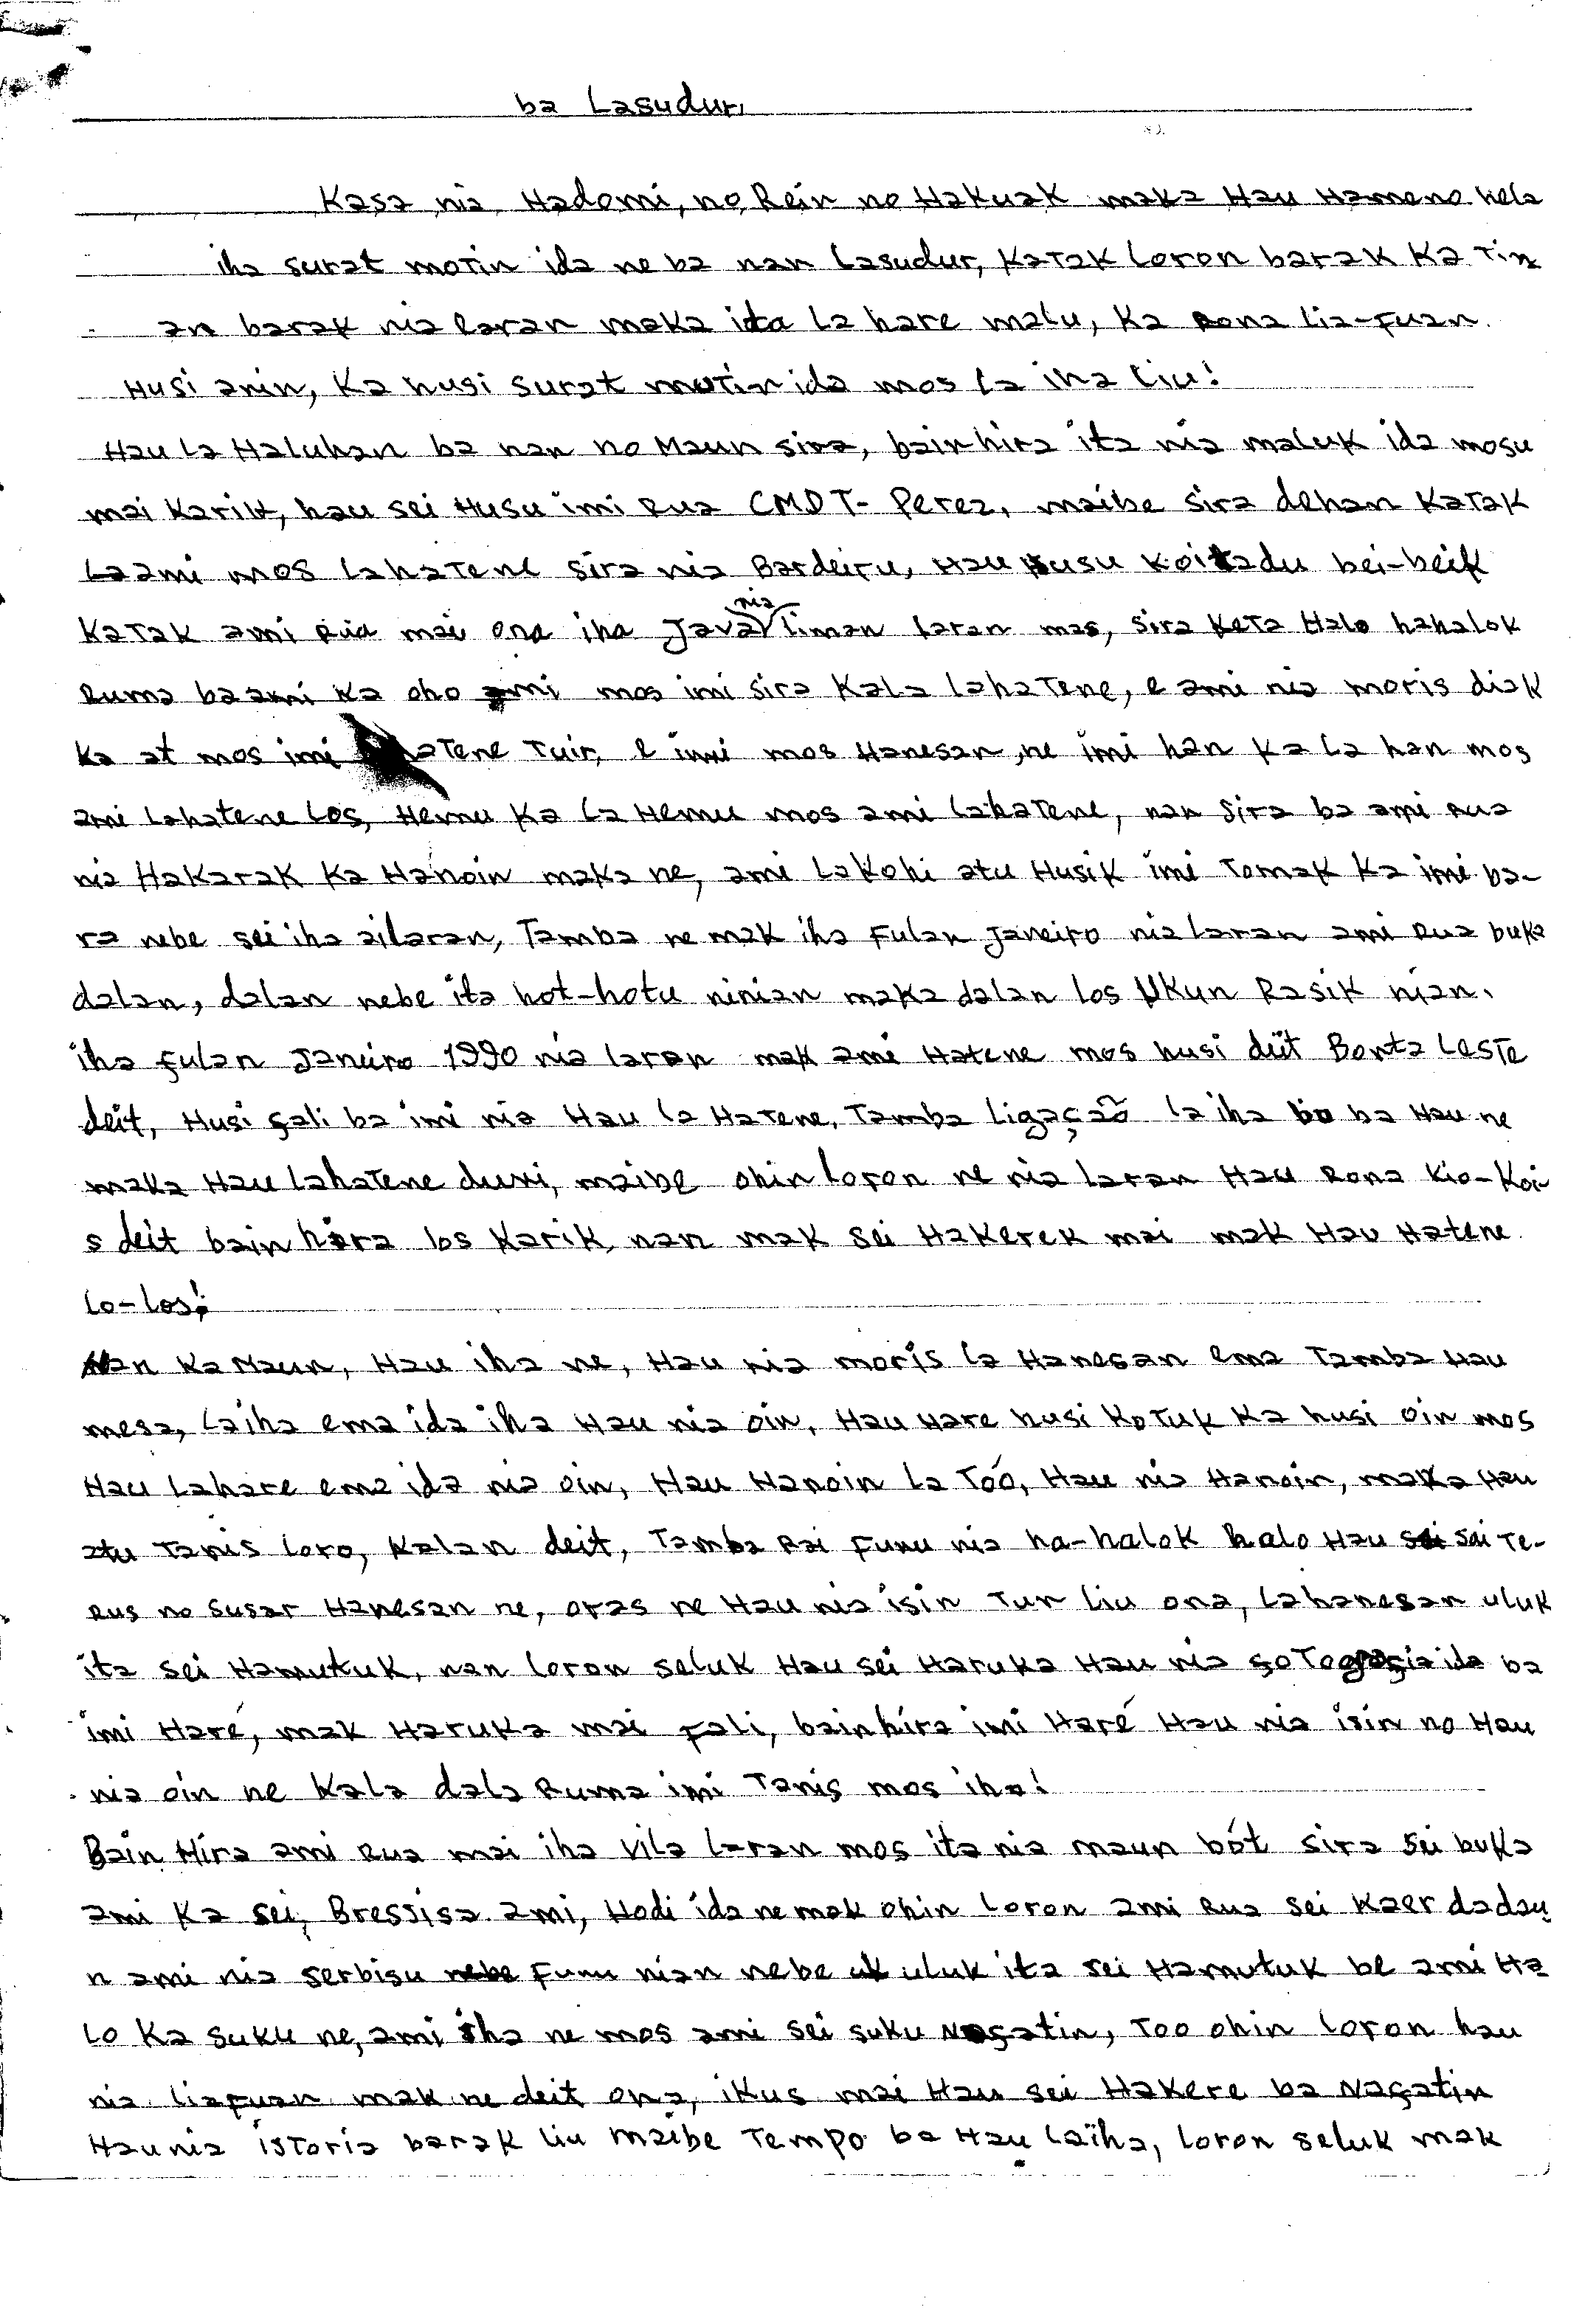 ba Lasudur,
Kasa nia Hadomi, no Rein no Hakuak maka Hau Hameno hela
iha surat motin ida ne ba nan Lasudur, Katak Loron barak Ka Tin
an barak nia laran maka ita la hare malu, Ka Rona lia-fuan
Husi anin, Ka husi surat mutin ida mos la iha liu!
Hau la Haluhan ba nan no Maun sira, bainhira ita nia maluk ida mosu
mai Karik, hau sei Husu imi Rua CMDT- Perez, maibe sira dehan Katak
La ami mos lahatene sira nia Bardeiru, Hau Husu Koitadu bei-beik
Katak ami Rua mai ona iha Java nia liman laran mas, sira Keta Halo hahalok
Ruma ba ami Ka oho ami mos imi sira Kala lahatene, e ami nia moris diak
Ka at mos imi Tuir, e imi mos Hanesan, ne imi han Ka la han mos
ami lahatene los, Hemu Ka la Hemu mos ami lahatene, nan Sira ba ami Rua
nia Hakarak Ka Hanoin maka ne, ami lakohi atu Husik imi Tomak Ka imi ba-
ra nebe sei iha ailaran, Tamba ne mak iha Fulan Janeiro nia laran ami Rua buka
dalan, dalan nebe ita hot-hotu ninian maka dalan los Ukun Rasik nian.
iha fulan Janeiro 1990 nia laran mak ami Hatene mos husi deit Bonta Leste
deit, Husi fali ba imi nia Hau la Hatene, Tamba ligação la iha ba Hau ne
maka Hau lahatene duni, maibe ohin loron ne nia laran Hau Rona Kio-Koi-
s deit bain hira los Karik, nan mak sei Hakerek mai mak Hau Hatene
lo-los!
Nan Ka Maun, Hau iha ne, Hau nia moris la Hanesan ema Tamba Hau
mesa, laiha ema ida iha Hau nia oin, Hau Hare husi Kotuk Ka husi oin mos
Hau lahare ema ida nia oin, Hau Hanoin la Too, Hau nia Hanoin, maka Hau
atu Tanis loro, Kalan deit, Tamba Rai Funu nia ha-halok halo Hau sei sai Te-
Rus no susar Hanesan ne, oras ne Hau nia isin Tun liu ona, lahanesan uluk
ita sei Hamutuk, nan loron seluk Hau sei Haruka Hau nia ida ba
imi Haré, mak Haruka mai fali, bainhira imi Haré Hau nia isin no Hau
nia oin ne Kala dala Ruma imi Tanis mos iha!
Bain Hira ami Rua mai iha Vila laran mos ita nia maun bót sira sei buka
ami Ka sei, Bressisa ami, Hodi ida ne mak ohin loron ami Rua sei Kaer dadau
n ami nia serbisu nebe Funu nian nebe uluk ita sei Hamutuk be ami Ha
lo Ka suku ne, ami iha ne mos ami sei suku Nafatin, Too ohin loron hau
nia liafuan mak ne deit ona, ikus mai Hau sei Hakere ba Nafatin
Hau nia istoria barak liu maibe Tempo ba Hau laiha, loron seluk mak